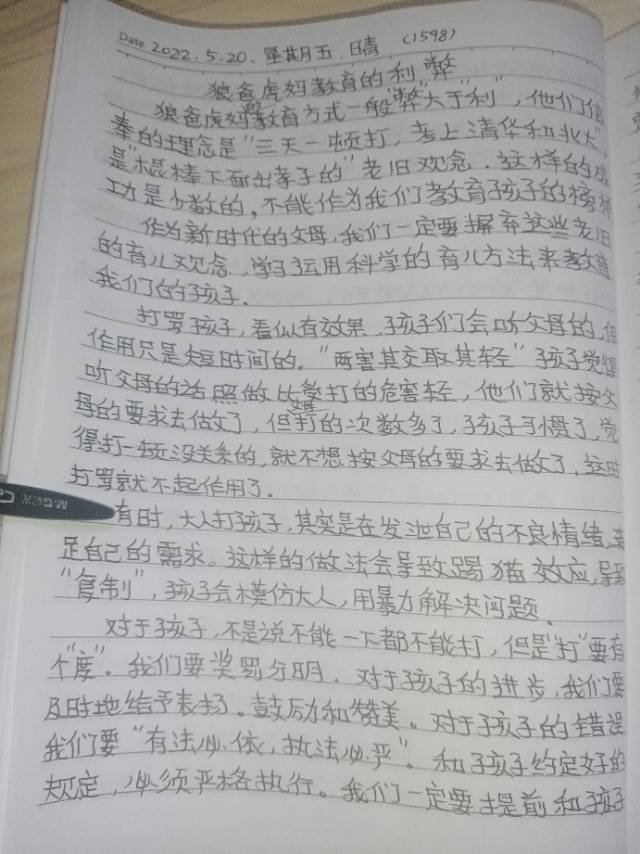 Date 2022.5.20. 星期五 晴 (1598)
狼爸虎妈教育的利弊
狼爸虎妈教育方式一般"弊"大于"利", 他们信
奉的理念是"三天一顿打, 考上清华和北大"
是"棍棒下面出孝子的"老旧观念. 这样的成
功是少数的, 不能作为我们教育孩子的榜样
作为新时代的父母, 我们一定要摒弃这些老旧
的育儿观念, 学习运用科学的育儿方法来教育
我们的孩子.
打骂孩子, 看似有效果, 孩子们会听父母的, 但
作用只是短时间的. "两害其交取其轻" 孩子觉得
听父母的话照做比挨打的危害轻, 他们就按父
母的要求去做了, 但父母打的次数多了, 孩子习惯了, 觉
得打一顿没关系的, 就不想按父母的要求去做了. 这时
打骂就不起作用了.
有时, 大人打孩子, 其实是在发泄自己的不良情绪, 满
足自己的需求。这样的做法会导致踢猫效应, 导致
"复制", 孩子会模仿大人, 用暴力解决问题。
对于孩子, 不是说不能一下都不能打, 但是"打"要有
个"度"。我们要奖罚分明. 对于孩子的进步, 我们要
及时地给予表扬。鼓励和赞美。对于孩子的错误
我们要"有法必依, 执法必严"。和孩子约定好的
规定, 必须严格执行。我们一定要提前和孩子
M&G